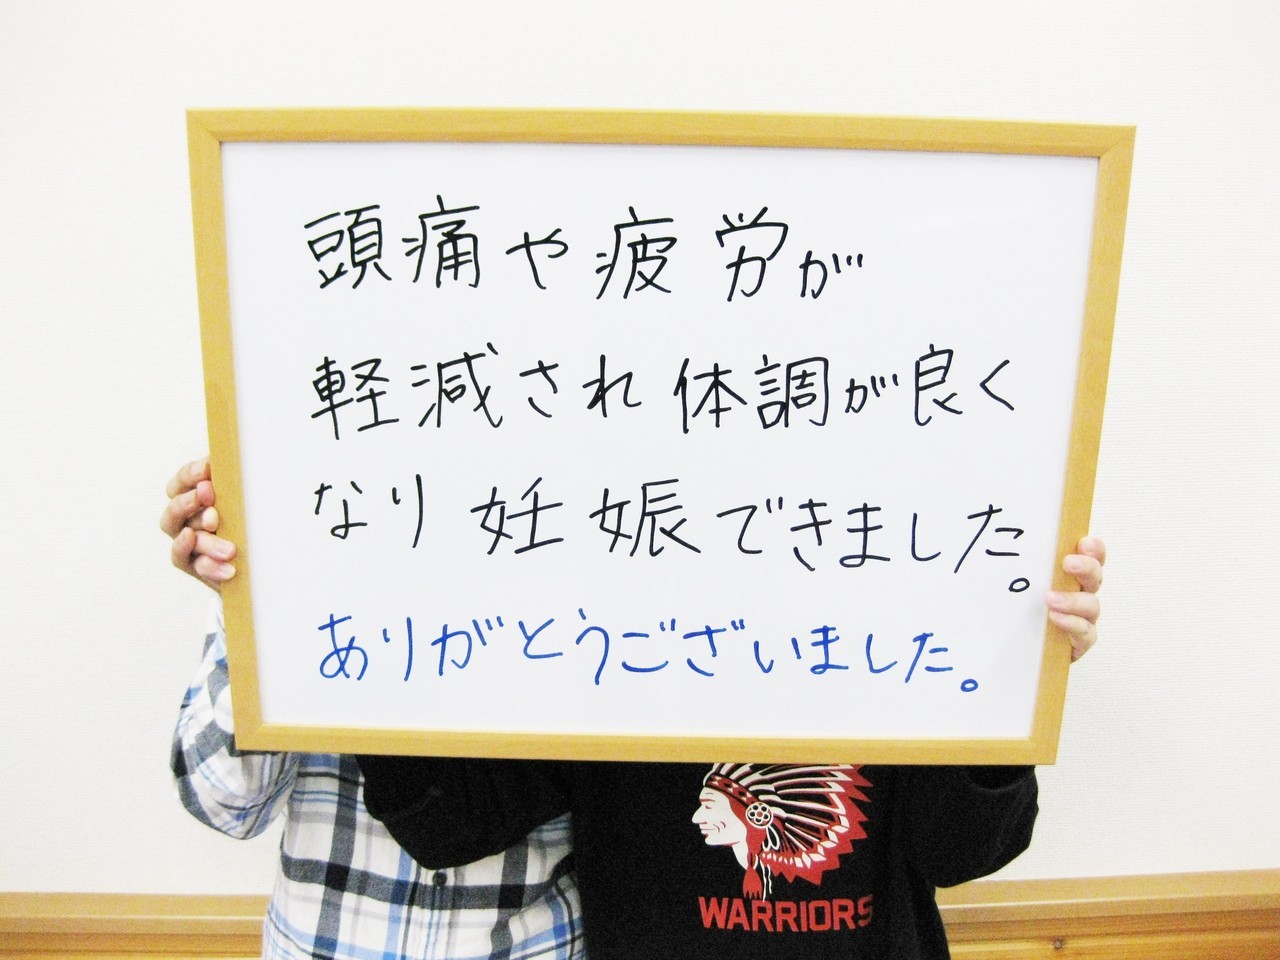 頭痛や疲労が
軽減され体調が良く
なり妊娠できました。
ありがとうございました。
WARRIORS